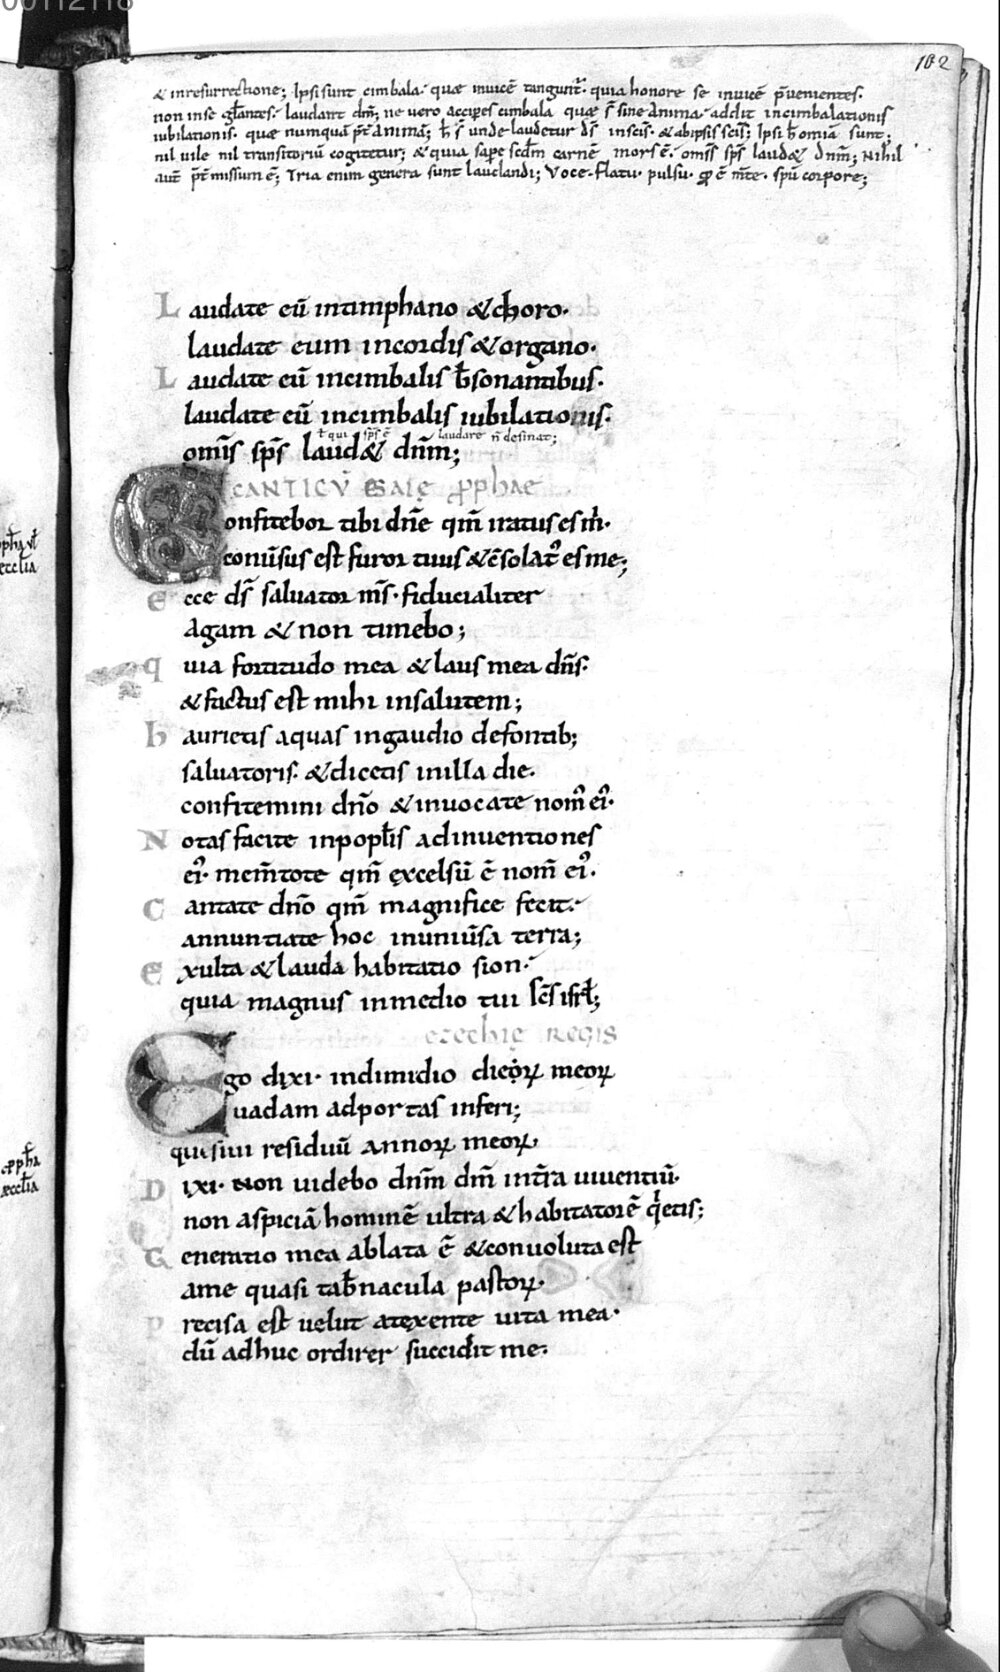 00112118
102
& inresurrectione; Ipsi sunt cimbala· quæ inuicē tangunt᷑· quia honore se inuicē p̄uenientes·
non inse gl̄antes· laudant dn̄m; ne uero acciꝑes cimbala quæ s̄ sine anima· addit incimbalationis
iubilationis· quæ numquā p̄t animā; h̄ ē unde laudetur ds̄ inscīs· & abipsis scīs; Ipsi h̄ omīa sunt;
nil uile nil transitoriū cogitetur; & quia sæpe scdm̄ carnē mors ē· omīs sp̄s laud& dn̄m; Nihil
aut̄ p̄t̄missum ē; Tria enim genera sunt laudandi; Voce· flatu· pulsu· ꝓ ē m̄te· sp̄u corpore;
Laudate eū intimphano & choro·
laudate eum incordis & organo·
Laudate eū incimbalis b̄sonantibus·
laudate eū incimbalis iubilationis·
ł qui sp̄s ē laudare n̄ desinat;
om̄is sp̄s laud& dn̄m;
CANTICV̄ ESAIĘ ꝓPhAE
Confitebor tibi dn̄e qm̄ iratus es m̓·
conūsus est furor tuus & c̄solat᷑ es me;
Ecce ds̄ saluator m̄s· fiducialiter
agam & non timebo;
quia fortitudo mea & laus mea dn̄s·
& factus est mihi insalutem;
haurietis aquas ingaudio defontib;
saluatoris· & dicetis inilla die·
confitemini dn̄o & inuocate nom̄ ei᷒·
Notas facite inpopl̄is adinuentiones
ei᷒· mem̄tote qm̄ ęxcelsū ē nom̄ ei᷒·
Cantate dn̄o qm̄ magnifice fecit·
annuntiate hoc inuniūsa terra;
Exulta & lauda habitatio sion·
quia magnus inmedio tui sc̄s isrł;
ezechię regis
Ego dixi· indimidio dieꝝ meoꝝ
uadam adportas inferi;
quesiui residuū annoꝝ meoꝝ·
Dixi· non uidebo dn̄m dm̄ int̄ra uiuentiū·
non aspiciā hominē ultra & habitatorē q̓etis;
Generatio mea ablata ē & conuoluta est
ame quasi tab̄nacula pastoꝝ·
precisa est uelut atexente uita mea·
dū adhuc ordirer succidit me·